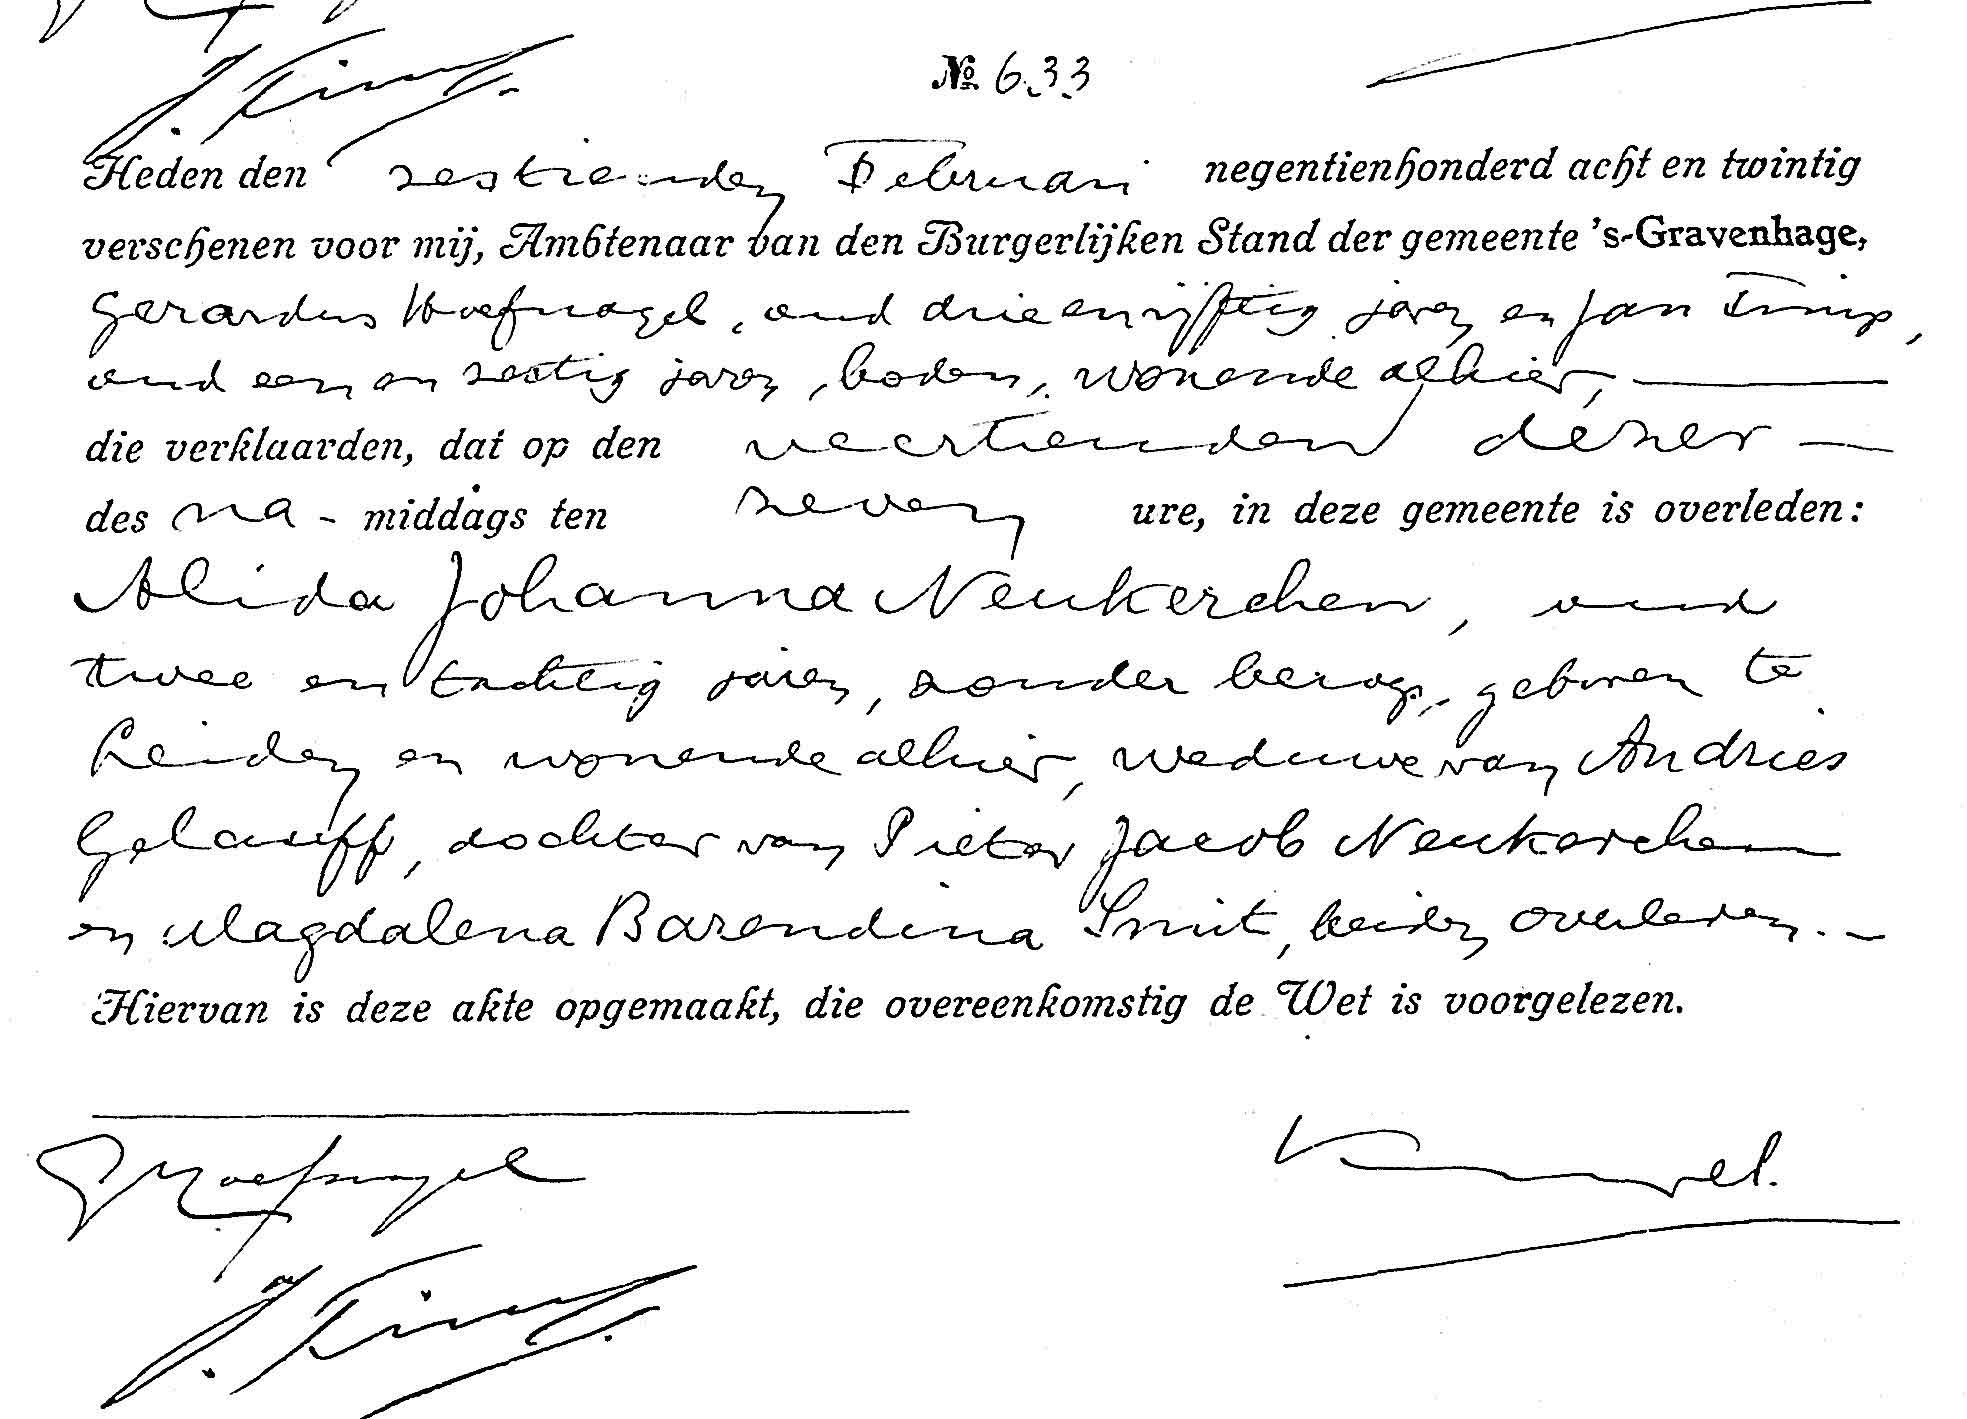 № 633
Heden den zestienden Februari negentienhonderd acht en twintig
verschenen voor mij, Ambtenaar van den Burgerlijken Stand der gemeente 's-Gravenhage,
Gerardus Hoefnagel, oud drie en vijftig jaren en Jan Timp,
oud een en zestig jaren, boden, wonende alhier,
die verklaarden, dat op den veertienden dezer
des na-middags ten zeven ure, in deze gemeente is overleden:
Alida Johanna Neukerchen, oud
twee en tachtig jaren, zonder beroep, geboren te
Leiden en wonende alhier, weduwe van Andries
Gelauff, dochter van Pieter Jacob Neukerchen
en Magdalena Barendina Smit, beiden overleden.
Hiervan is deze akte opgemaakt, die overeenkomstig de Wet is voorgelezen.
G Hoefnagel
J. Timp.